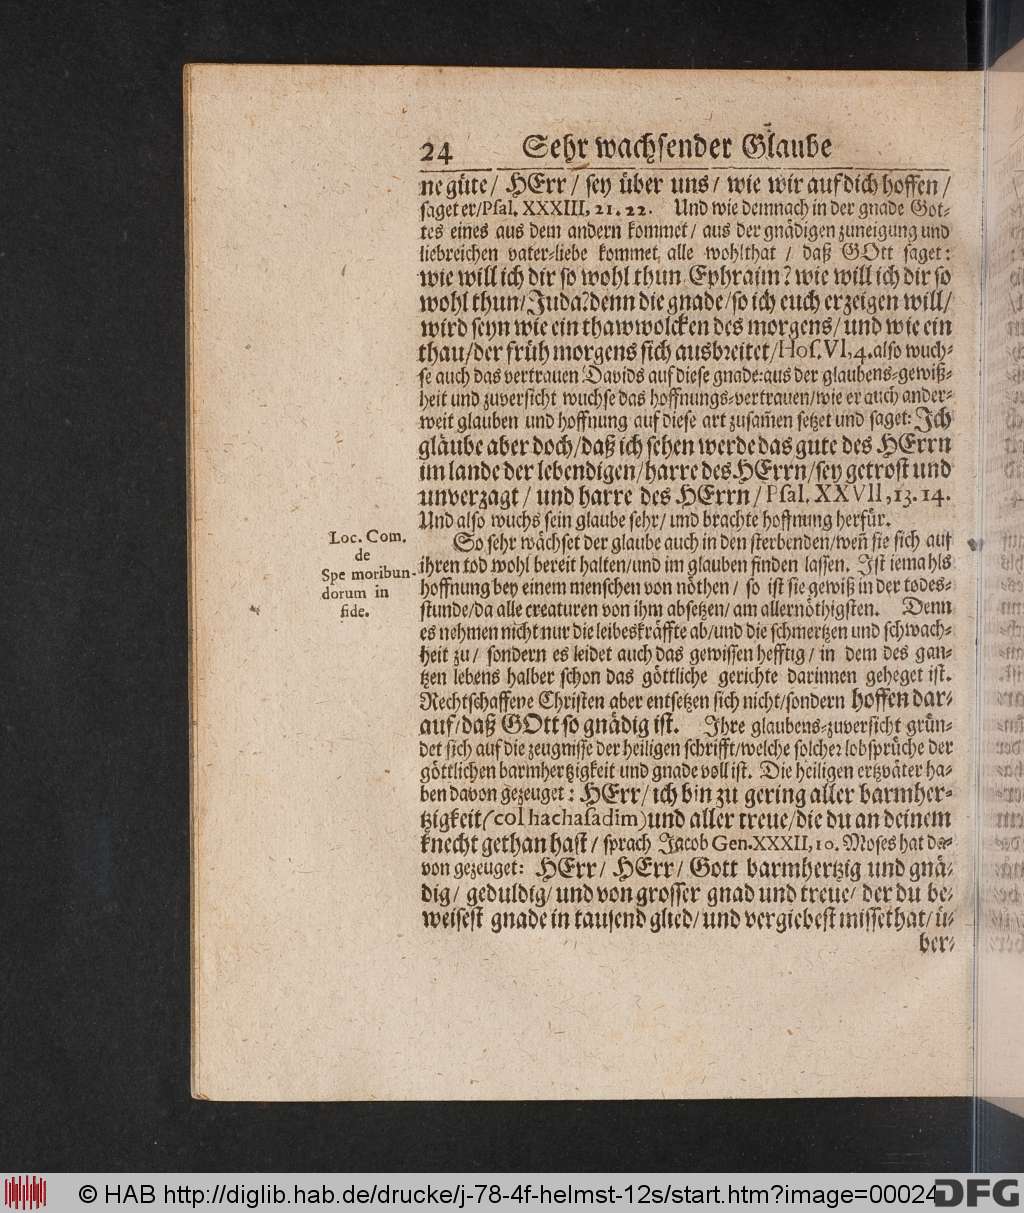 24 Sehr wachsender Glaube
ne güte/ HErr/ sey über uns/ wie wir auf dich hoffen/
saget er/Psal. XXXIII, 21. 22. Und wie demnach in der gnade Got-
tes eines aus dem andern kommet/ aus der gnädigen zuneigung und
liebreichen vater-liebe kommet alle wohlthat / daß GOtt saget:
wie will ich dir so wohl thun Ephraim? wie will ich dir so
wohl thun/Juda? denn die gnade/so ich euch erzeigen will/
wird seyn wie ein thawwolcken des morgens/ und wie ein
thau/der früh morgens sich ausbreitet/Hos. VI, 4. also wuch-
se auch das vertrauen Davids auf diese gnade: aus der glaubens-gewiß-
heit und zuversicht wuchse das hoffnungs-vertrauen/wie er auch ander-
weit glauben und hoffnung auf diese art zusam̃en setzet und saget: Jch
gläube aber doch/daß ich sehen werde das gute des HErrn
im lande der lebendigen/harre des HErrn/sey getrost und
unverzagt/ und harre des HErrn/Psal. XXVII, 13. 14.
Und also wuchs sein glaube sehr/ und brachte hoffnung herfür.
So sehr wächset der glaube auch in den sterbenden/weñ sie sich auf
ihren tod wohl bereit halten/und im glauben finden lassen. Jst iemahls
hoffnung bey einem menschen von nöthen/ so ist sie gewiß in der todes-
stunde/da alle creaturen von ihm absetzen/ am allernöthigsten. Denn
es nehmen nicht nur die leibeskräffte ab/und die schmertzen und schwach-
heit zu/ sondern es leidet auch das gewissen hefftig/ in dem des gan-
tzen lebens halber schon das göttliche gerichte darinnen geheget ist.
Rechtschaffene Christen aber entsetzen sich nicht/sondern hoffen dar-
auf/daß GOtt so gnädig ist. Jhre glaubens-zuversicht grün-
det sich auf die zeugnisse der heiligen schrifft/welche solcher lobsprüche der
göttlichen barmhertzigkeit und gnade voll ist. Die heiligen ertzväter ha-
ben davon gezeuget: HErr/ich bin zu gering aller barmher-
tzigkeit(col hachasadim)und aller treue/die du an deinem
knecht gethan hast/ sprach Jacob Gen. XXXII, 10. Moses hat da-
von gezeuget: HErr/ HErr/ Gott barmhertzig und gnä-
dig/ geduldig/ und von grosser gnad und treue/ der du be-
weisest gnade in tausend glied/ und vergiebest missethat/ ü-
ber-
Loc. Com.
de
Spe moribun-
dorum in
fide.
© HAB http://diglib.hab.de/drucke/j-78-4f-helmst-12s/start.htm?image=00024
DFG